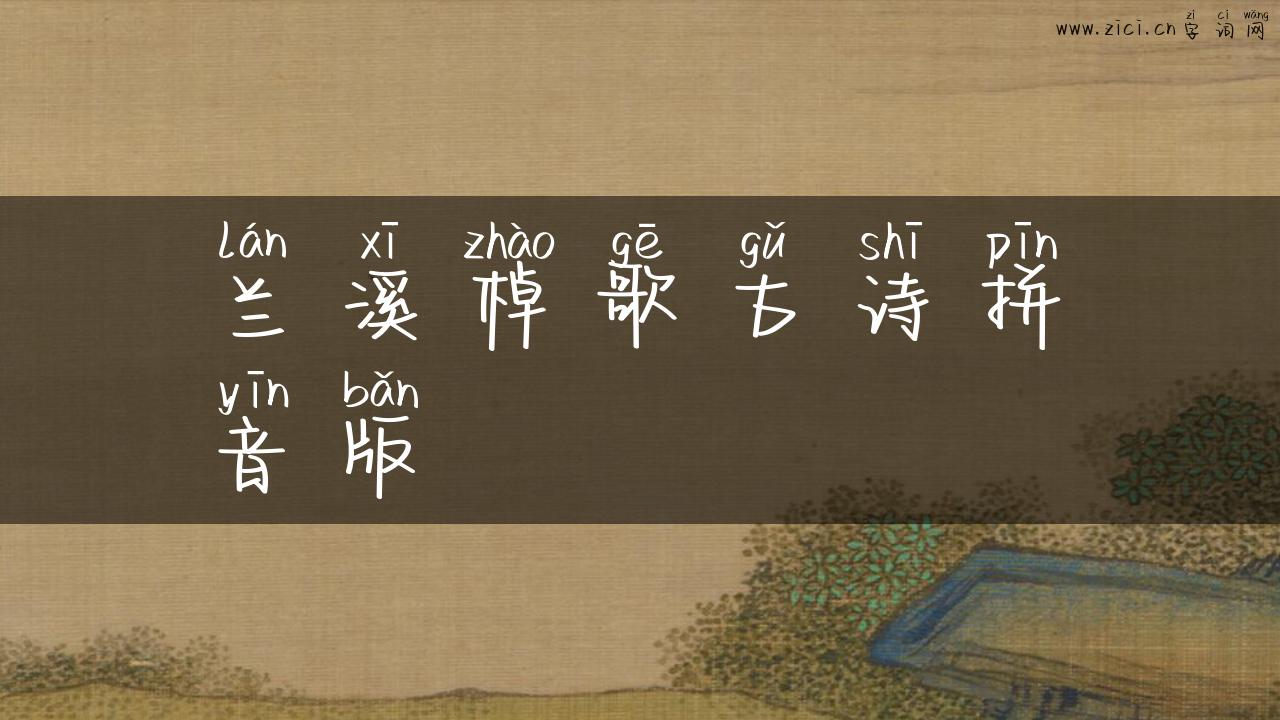 zì cí wǎng
www.zici.cn 字词网
lán xī zhào gē gǔ shī pīn
兰溪棹歌古诗拼
yīn bǎn
音版